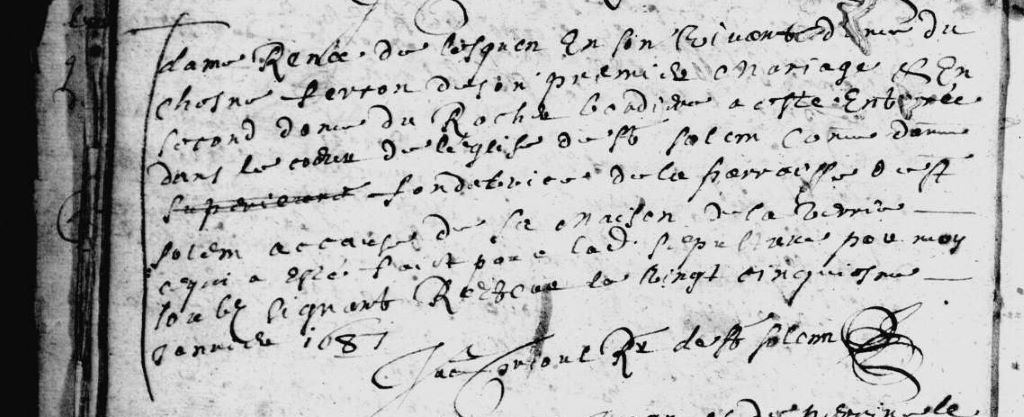 dame Renée de lesquen En son vivant dame du
chesne ferron de son premier mariage & En
second dame du Rocher bordiere a esté Enterrée
dans le coeur de l'eglise de st solem come dame
superieure fondatrice de la parroisse de st
solem a cause de sa maison de la verrie
ce qui a esté faict pour lad sepulture par moy
soub signant Recteur le vingt cinquiesme
Janvier 1687
Rr de st solem